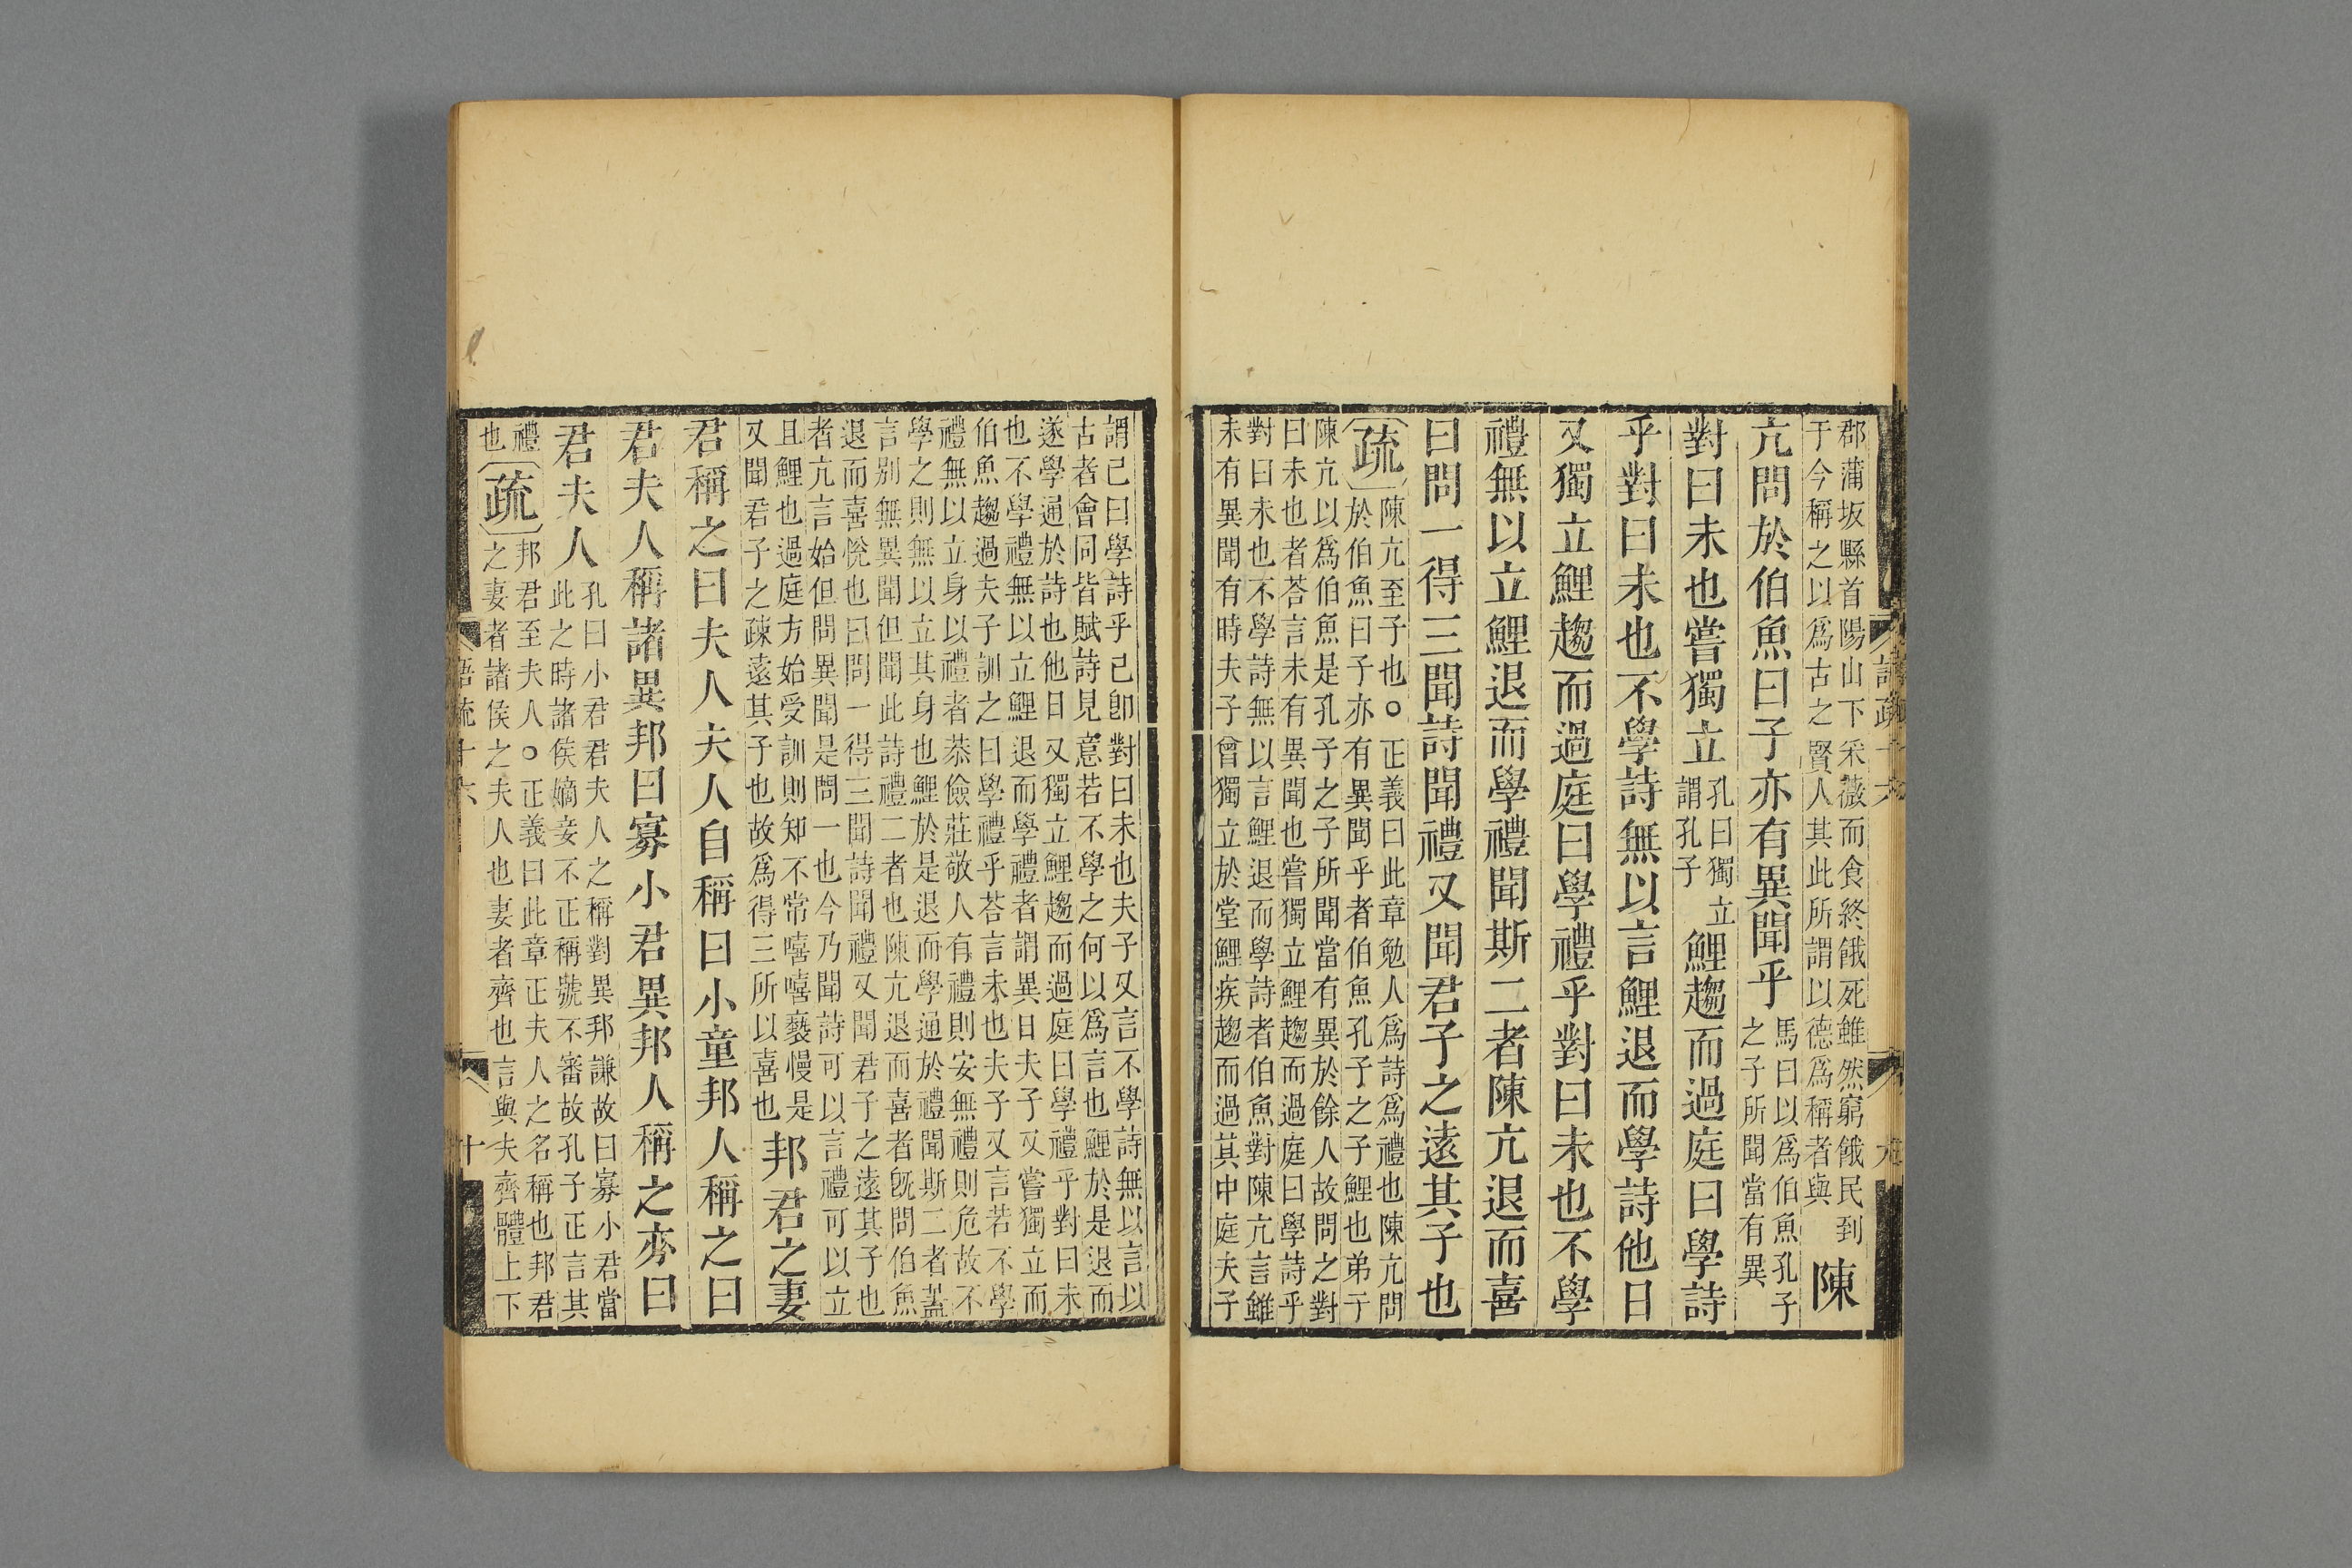 郡蒲坂縣首陽山下采薇而食終餓死雖然窮餓民到
于今稱之以爲古之賢人其此所謂以德爲稱者與
陳
亢問於伯魚曰子亦有異聞乎
馬曰以爲伯魚孔子
之子所聞當有異
對曰未也嘗獨立
孔曰獨立
謂孔子
鯉趨而過庭曰學詩
乎對曰未也不學詩無以言鯉退而學詩他日
又獨立鯉趨而過庭曰學禮乎對曰未也不學
禮無以立鯉退而學禮聞斯二者陳亢退而喜
曰問一得三聞詩聞禮又聞君子之遠其子也
疏
陳亢至子也○正義曰此章勉人爲詩爲禮也陳亢問
於伯魚曰子亦有異聞乎者伯魚孔子之子鯉也弟于
陳亢以爲伯魚是孔子之子所聞當有異於餘人故問之對
曰未也者荅言未有異聞也嘗獨立鯉趨而過庭曰學詩乎
對曰未也不學詩無以言鯉退而學詩者伯魚對陳亢言雖
未有異聞有時夫子曾獨立於堂鯉疾趨而過其中庭夫子
謂己曰學詩乎己卽對曰未也夫子又言不學詩無以言以
古者會同皆賦詩見意若不學之何以爲言也鯉於是退而
遂學通於詩也他日又獨立鯉趨而過庭曰學禮乎對曰未
也不學禮無以立鯉退而學禮者謂異日夫子又嘗獨立而
伯魚趨過夫子訓之曰學禮乎荅言未也夫子又言若不學
禮無以立身以禮者恭儉莊敬人有禮則安無禮則危故不
學之則無以立其身也鯉於是退而學通於禮聞斯二者蓋
言别無異聞但聞此詩禮二者也陳亢退而喜者旣問伯魚
退而喜悅也曰問一得三聞詩聞禮又聞君子之遠其子也
者亢言始但問異聞是問一也今乃聞詩可以言禮可以立
且鯉也過庭方始受訓則知不常嘻嘻褻慢是
又聞君子之疎遠其子也故爲得三所以喜也
邦君之妻
君稱之曰夫人夫人自稱曰小童邦人稱之曰
君夫人稱諸異邦曰寡小君異邦人稱之亦曰
君夫人
孔曰小君君夫人之稱對異邦謙故曰寡小君當
此之時諸侯嫡妾不正稱號不審故孔子正言其
禮
也
疏
邦君至夫人○正義曰此章正夫人之名稱也邦君
之妻者諸侯之夫人也妻者齊也言與夫齊體上下
語疏十六
十